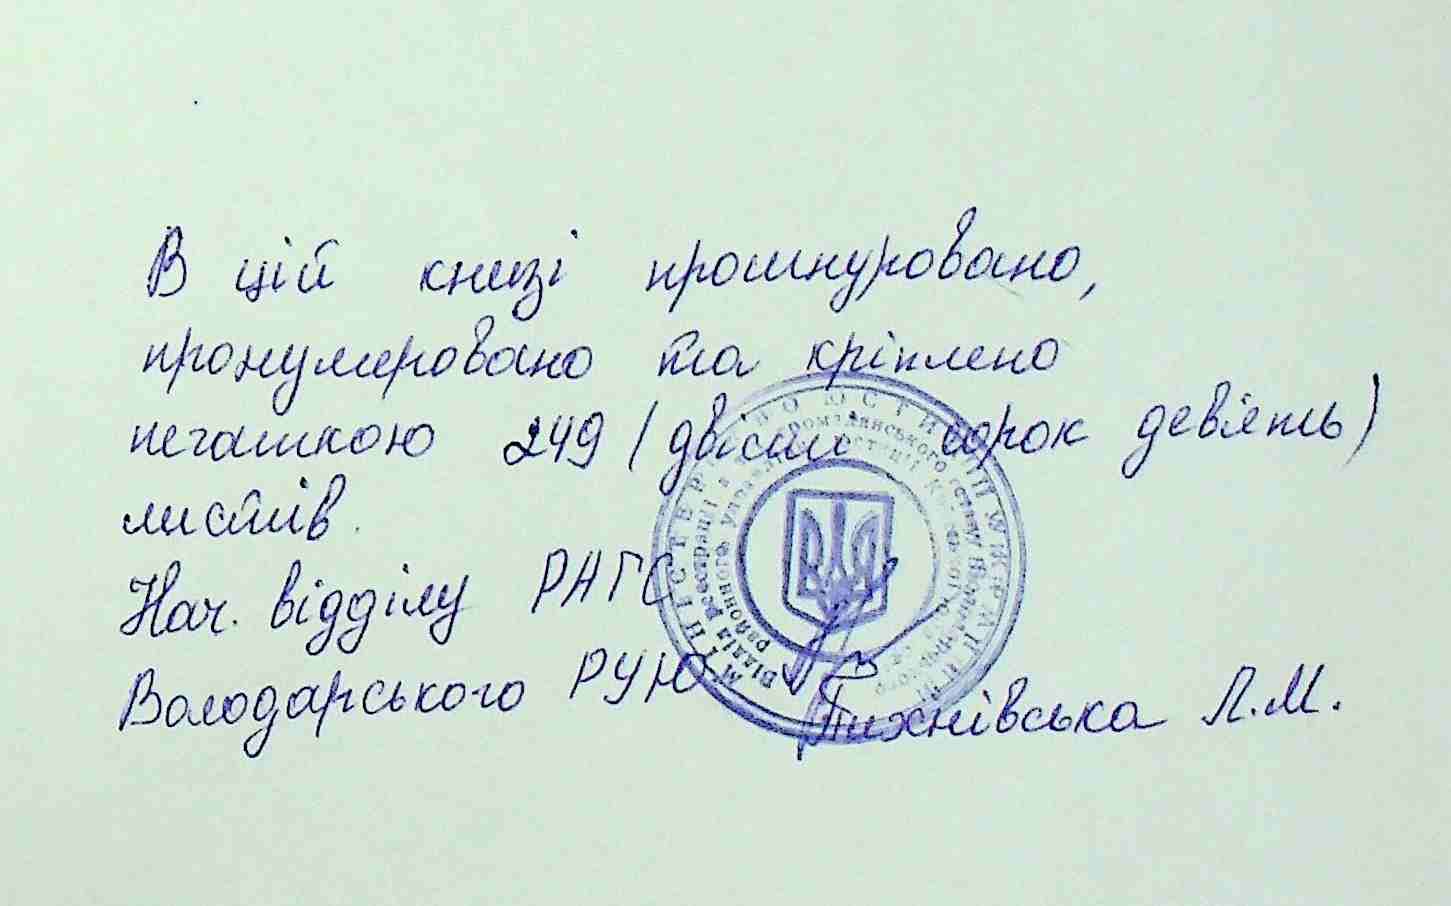 В цій книзі прошнуровано,
пронумеровано та кріплено
печаткою 249 (двісті сорок дев'ять)
листів.
Нач. відділу РАГС
Володарського РУЮ Тихнівська Л.М.
МІНІСТЕРСТВО ЮСТИЦІЇ УКРАЇНИ
Відділ реєстрації актів громадянського стану
районного управління юстиції